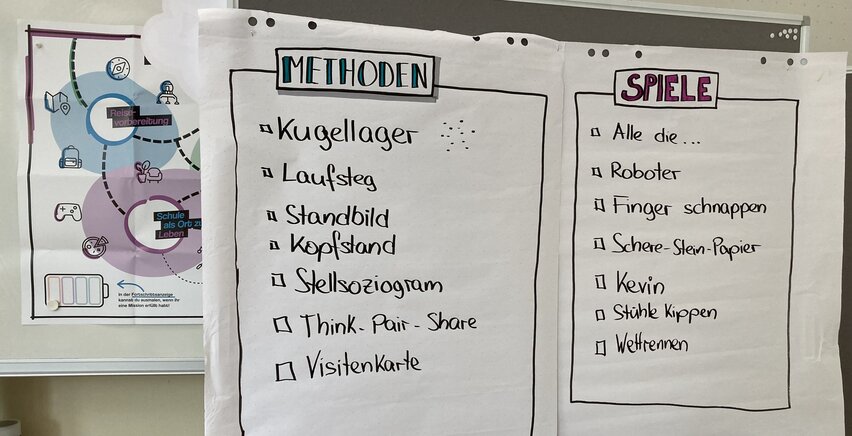 Reise-
vorbereitung
Schule
als Ort zu
Leben
In der Fortschrittsanzeige
kannst du ausmalen, wenn ihr
eine Mission erfüllt habt!
METHODEN
Kugellager
Laufsteg
Standbild
Kopfstand
Stellsoziogram
Think-Pair-Share
Visitenkarte
SPIELE
Alle die...
Roboter
Finger schnappen
Schere-Stein-Papier
Kevin
Stühle Kippen
Wettrennen